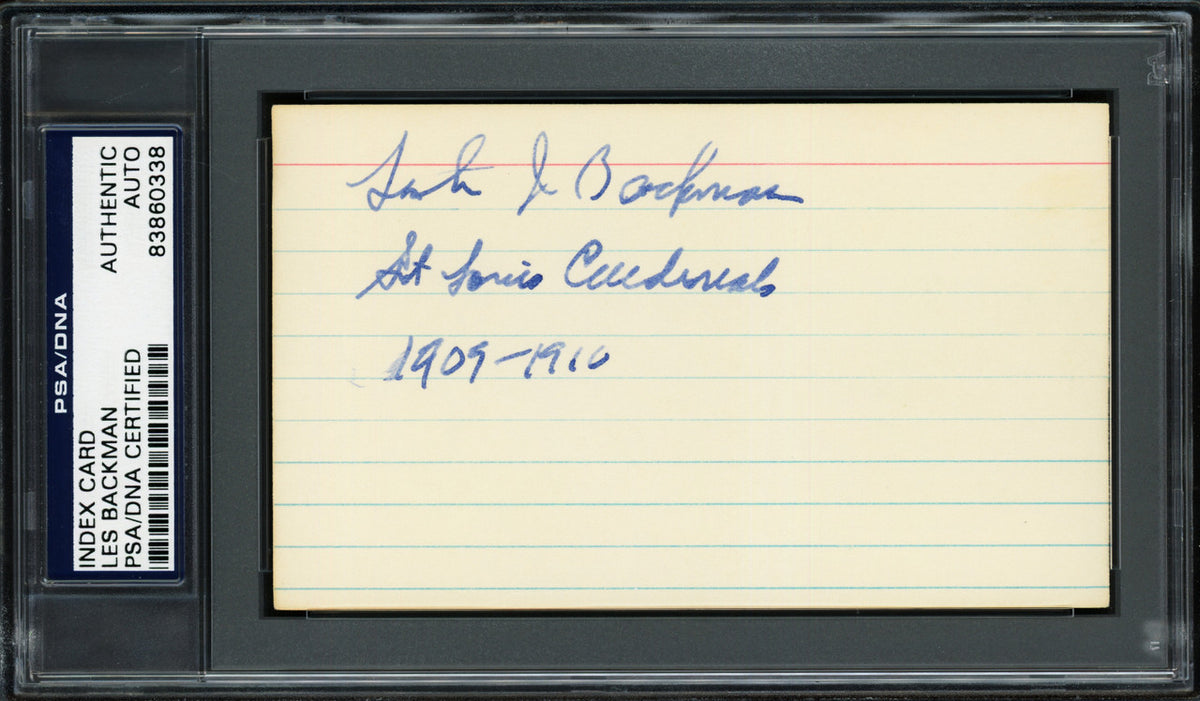 PSA/DNA
INDEX CARD
LES BACKMAN
PSA/DNA CERTIFIED
AUTHENTIC
AUTO
83860338
Lester J Backman
St Louis Cardinals
1909-1910